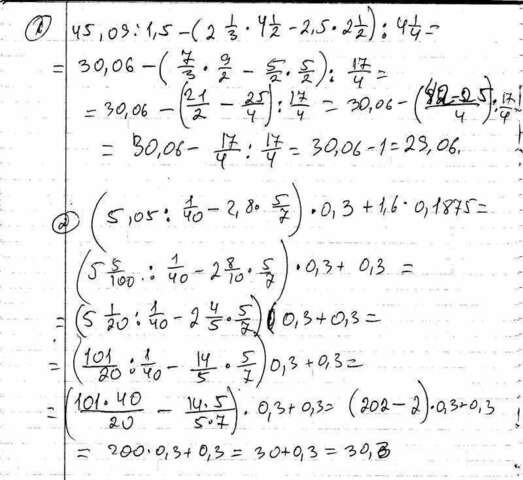 1) 45,09 : 1,5 - (2 1/3 · 4 1/2 - 2,5 · 2 1/2) : 4 1/4 =
= 30,06 - (7/3 · 9/2 - 5/2 · 5/2) : 17/4 =
= 30,06 - (21/2 - 25/4) : 17/4 = 30,06 - ((42-25)/4) : 17/4
= 30,06 - 17/4 : 17/4 = 30,06 - 1 = 29,06.
2) (5,05 : 1/40 - 2,8 · 5/7) · 0,3 + 1,6 · 0,1875 =
(5 5/100 : 1/40 - 2 8/10 · 5/7) · 0,3 + 0,3 =
= (5 1/20 : 1/40 - 2 4/5 · 5/7) 0,3 + 0,3 =
= (101/20 : 1/40 - 14/5 · 5/7) 0,3 + 0,3 =
= (101·40/20 - 14·5/5·7) · 0,3 + 0,3 = (202 - 2) · 0,3 + 0,3
= 200 · 0,3 + 0,3 = 30 + 0,3 = 30,3